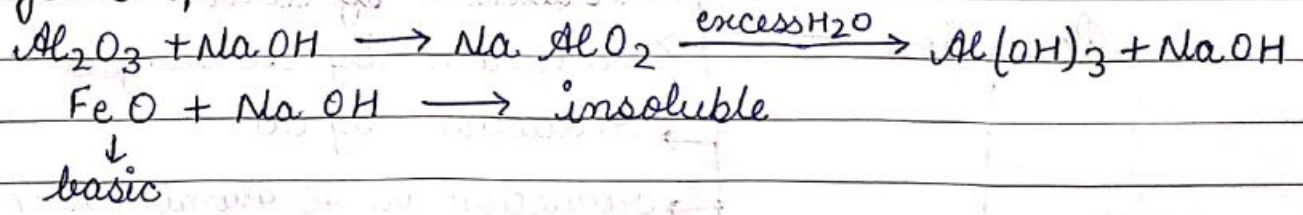 Al2O3 + NaOH → Na AlO2 excess H2O → Al(OH)3 + NaOH
FeO + NaOH → insoluble
↓
basic